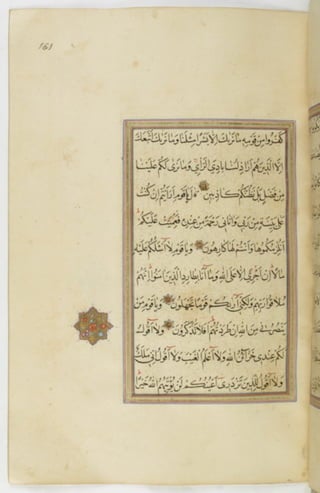 161
كفروا من قومه ما نراك الا بشرا مثلنا وما نراك اتبعك
الا الذين هم اراذلنا بادي الراي وما نرى لكم علينا
من فضل بل نظنكم كاذبين قال ياقوم ارايتم ان كنت
على بينة من ربي واتاني رحمة من عنده فعميت عليكم
انلزمكموها وانتم لها كارهون وياقوم لا اسئلكم عليه
مالا ان اجري الا على الله وما انا بطارد الذين امنوا انهم
ملاقوا ربهم ولكني اراكم قوما تجهلون وياقوم من
ينصرني من الله ان طردتهم افلا تذكرون ولا اقول
لكم عندي خزائن الله ولا اعلم الغيب ولا اقول اني ملك
ولا اقول للذين تزدري اعينكم لن يؤتيهم الله خيرا